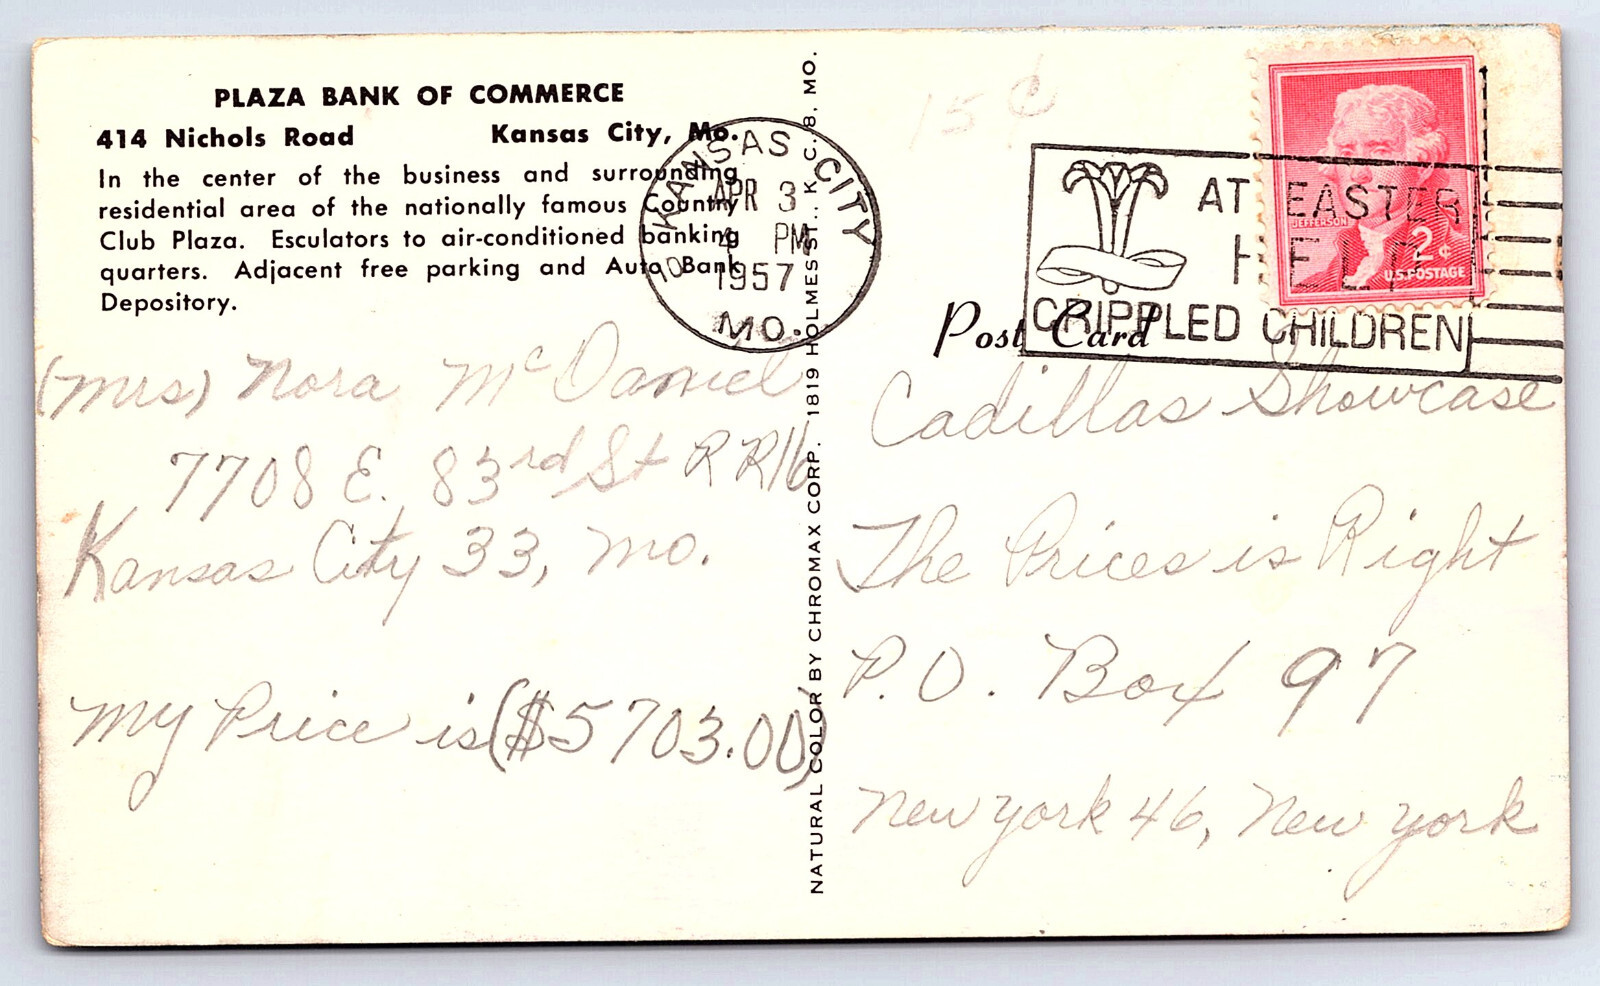 PLAZA BANK OF COMMERCE
414 Nichols Road Kansas City, Mo.
In the center of the business and surrounding
residential area of the nationally famous Country
Club Plaza. Esculators to air-conditioned banking
quarters. Adjacent free parking and Auto Bank
Depository.
(Mrs) Nora McDaniel
7708 E. 83rd St RR16
Kansas City 33, Mo.
My Price is ($5703.00)
NATURAL COLOR BY CHROMAX CORP. 1819 HOLMES ST., K.C. 8, MO.
KANSAS CITY
APR 3
4 PM
1957
MO.
15¢
AT EASTER
HELP
CRIPPLED CHILDREN
JEFFERSON
2¢
U.S. POSTAGE
Post Card
Cadillas Showcase
The Prices is Right
P.O. Box 97
New York 46, New York